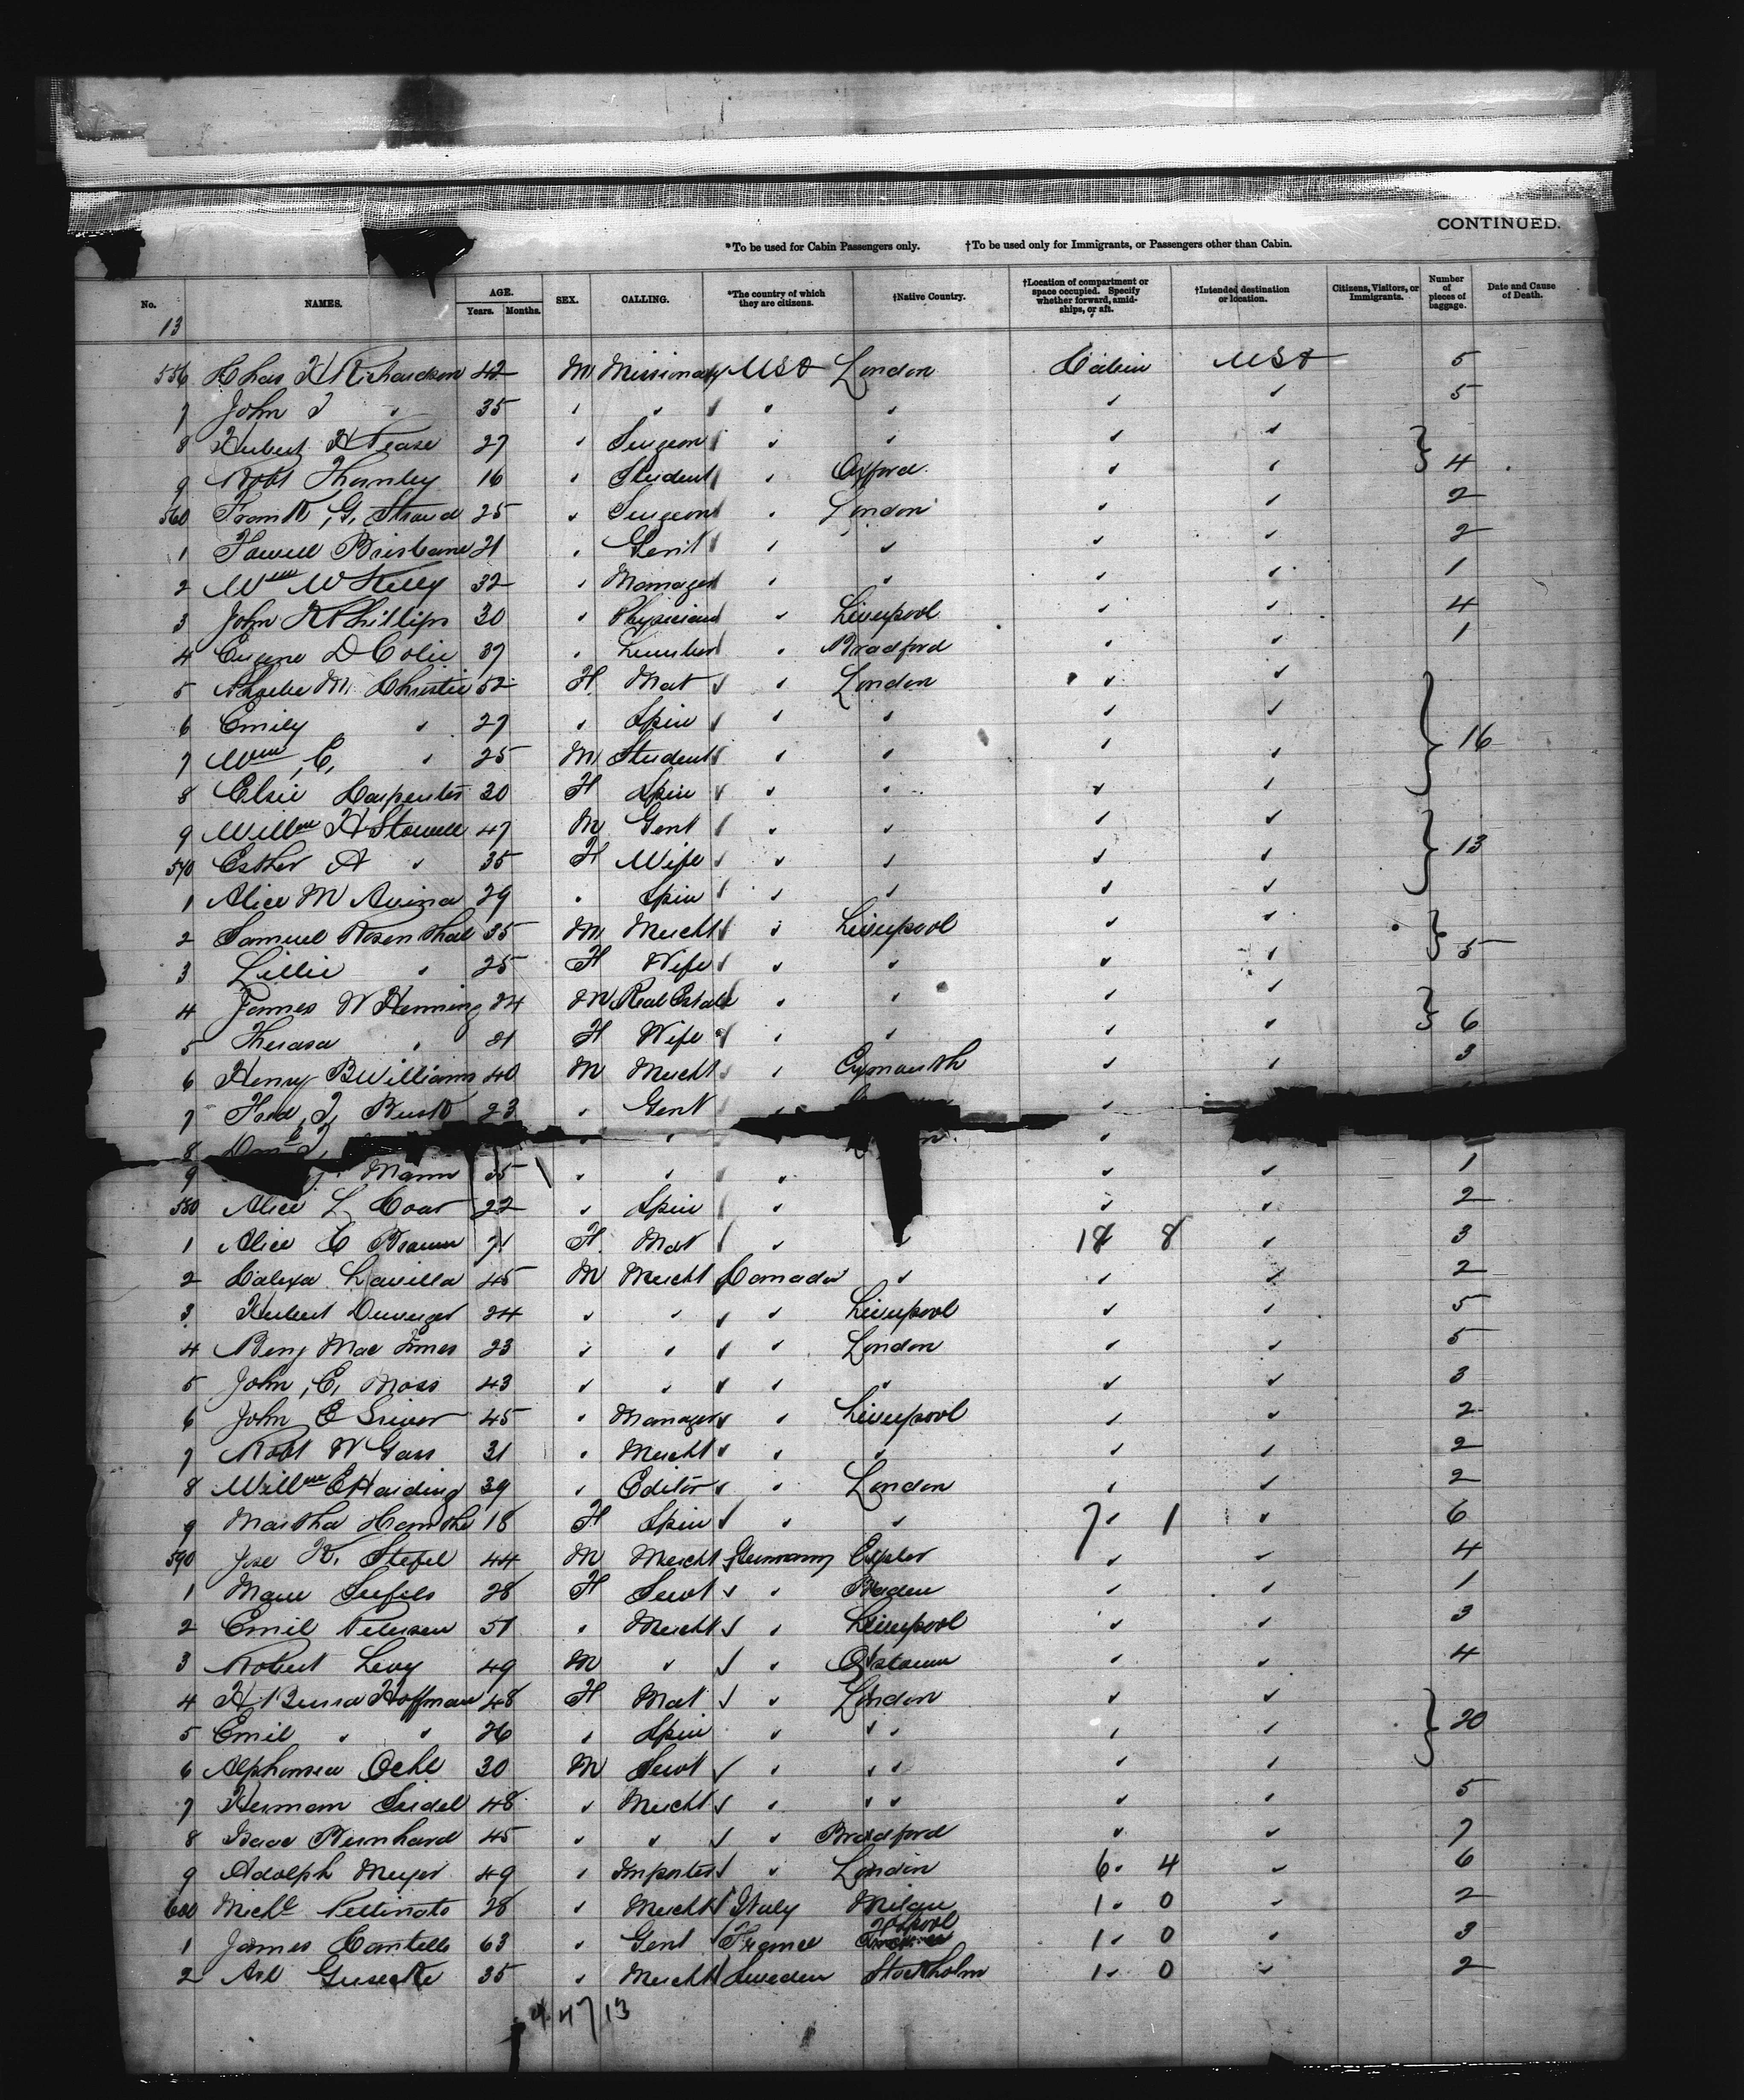 CONTINUED.
*To be used for Cabin Passengers only. †To be used only for Immigrants, or Passengers other than Cabin.
No. NAMES. AGE. Years. Months. SEX. CALLING. *The country of which they are citizens. †Native Country. †Location of compartment or space occupied. Specify whether forward, amidships, or aft. †Intended destination or location. Citizens, Visitors, or Immigrants. Number of pieces of baggage. Date and Cause of Death.
13
556 Chas H Richardson 42 M Missionary USA London Cabin USA 5
7 John T " 35 " " " " " " 5
8 Hubert H Pease 27 " Surgeon " " " "
9 Robt Thornley 16 " Student " Oxford " " } 4
560 Frank, G, Stroud 25 " Surgeon " London " " 2
1 Brisbane 21 " Gent " " " " 2
2 Wm W Kelly 32 " Manager " " " " 1
3 John K Phillips 30 " Physician " Liverpool " " 4
4 Eugene D Colie 37 " " Bradford " " 1
5 Phoebe M. Christie 52 F. Mat " London " "
6 Emily " 27 " Spin " " " "
7 Wm, C, " 25 M Student " " " " } 16
8 Elsie Carpenter 30 F Spin " " " "
9 Willm H Stowell 47 M Gent " " " "
570 Esther A " 35 F Wife " " " " } 13
1 Alice M 29 " Spin " " " "
2 Samuel Rosenthal 35 M Mercht " Liverpool " "
3 Lillie " 25 F Wife " " " " } 5
4 James W Henning 24 M Real Estate " " " "
5 Therasa " 21 F Wife " " " " } 6
6 Henry B Williams 40 M Mercht " " " 3
7 Fred, T, Busk 23 " Gent " "
8 " " "
9 Mann 35 " " " " " 1
580 Alice L Coar 22 " Spin " " " 2
1 Alice C Braun 71 F. Mat " " 18 8 " 3
2 Lavilla 45 M Mercht Canada " " " 2
3 Hubert 24 " " " Liverpool " " 5
4 Benj Mac Innes 23 " " " London " " 5
5 John, C, Moss 43 " " " " " " 3
6 John E 45 " Manager " Liverpool " " 2
7 Robt W Gass 31 " Mercht " " " " 2
8 Willm E Harding 39 " Editor " London " " 2
9 Martha 18 F Spin " " 7 " 1 " 6
590 K. Stefel 44 M Mercht Germany " " 4
1 28 F Servt " Baden " " 1
2 Emil Petersen 51 " Mercht " Liverpool " " 3
3 Robert Levy 49 M " " " " 4
4 Hoffman 48 F Mat " London " "
5 Emil " " 26 " Spin " " " " " } 20
6 Oehl 30 M Servt " " " " "
7 Herman Seidel 48 " Mercht " " " " " 5
8 Isaac Bernhard 45 " " " Bradford " " 7
9 Adolph Meyer 49 " Importer " London 6 " 4 " 6
600 Michle Pellinato 28 " Mercht Italy Milan 1 " 0 " 2
1 James 63 " Gent France L'pool 1 " 0 " 3
2 35 " Mercht Sweden Stockholm 1 " 0 " 2
4 47 13